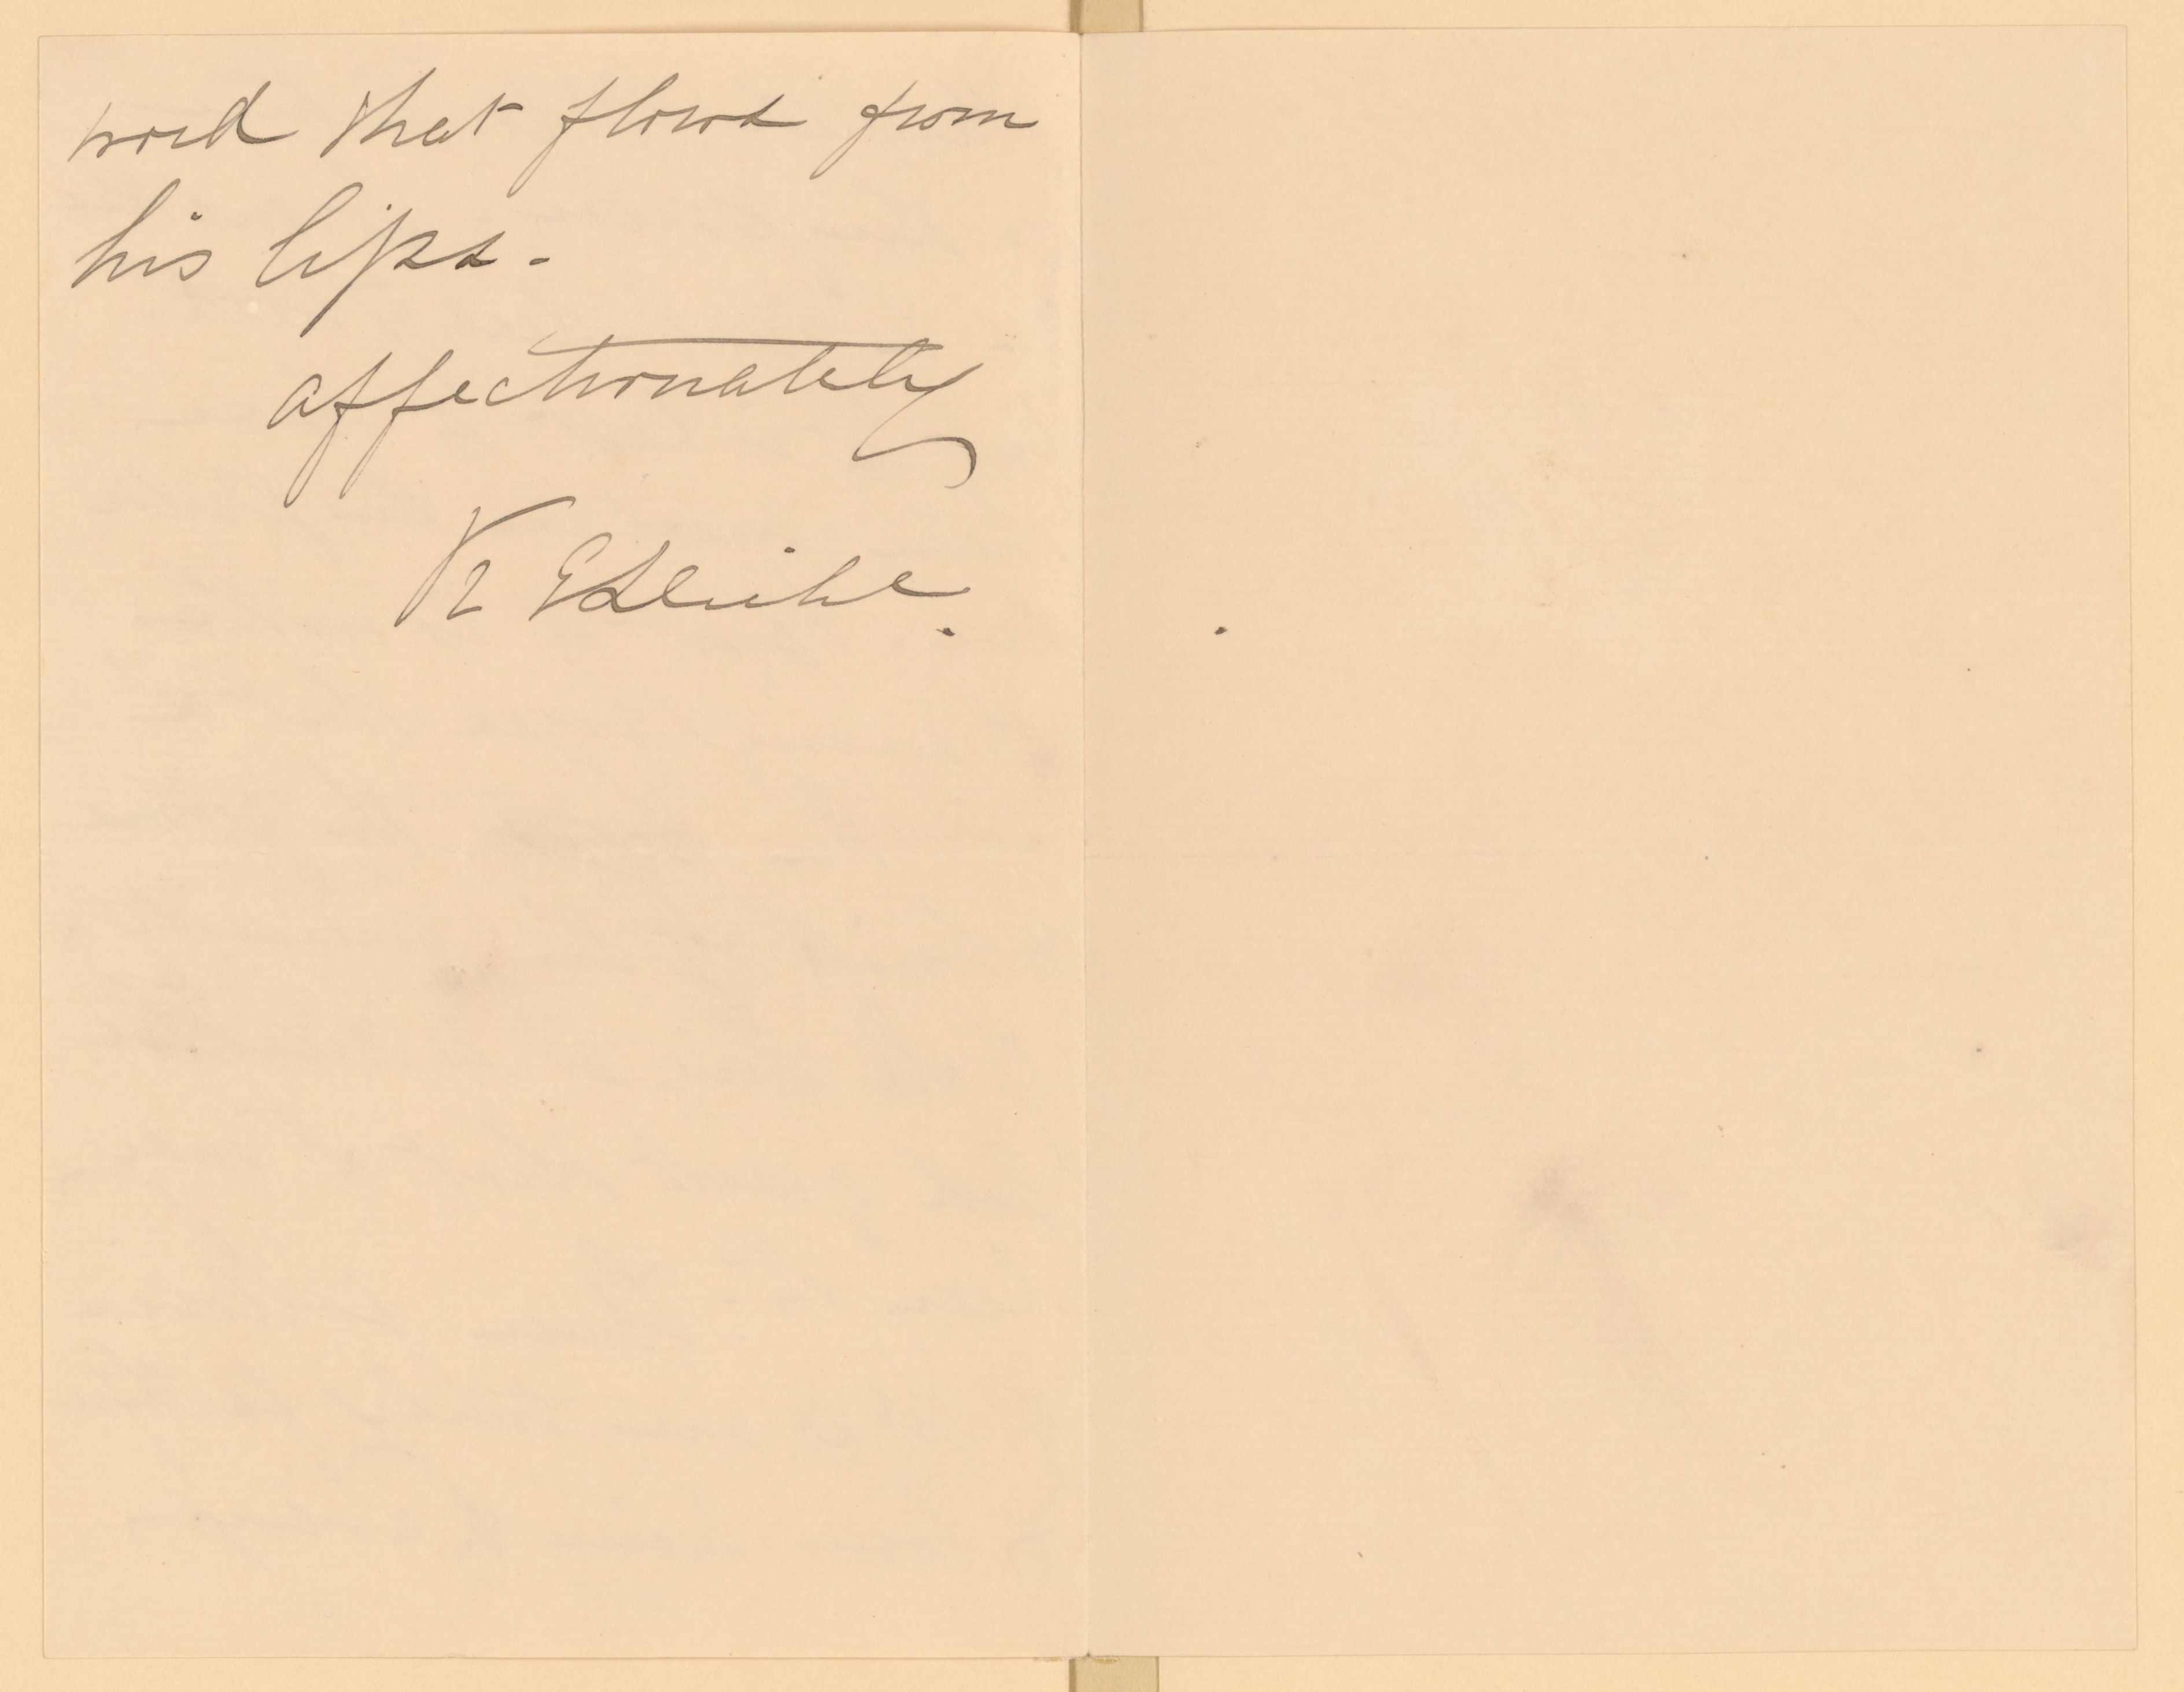 word that flows from
his lips.
affectionately